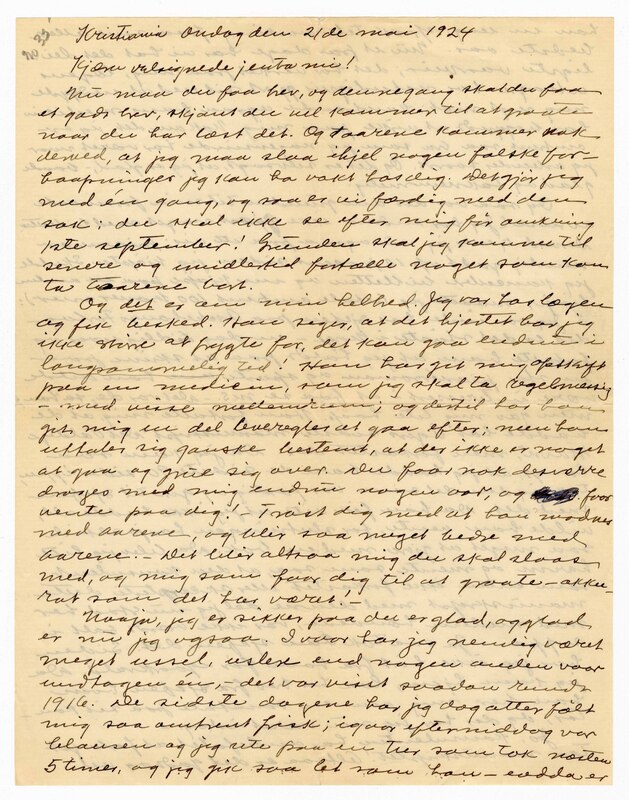 No 35
Kristiania Onsdag den 21de mai 1924
Kjære velsignede jenta mi!
Nu maa du faa brev, og dennegang skal du faa
et godt brev, skjønt du vil kommer til at graate
naar du har læst det. Og taarene kommer nok
derved, at jeg maa slaa ihjel nogen falske for-
haapninger jeg kan ha vakt hos dig. Det gjør jeg
med én gang, og saa er vi færdig med den
sak: du skal ikke se efter mig før omkring
1ste september! Grunden skal jeg komme til
senere og imidlertid fortælle noget som kan
ta taarene bort.
Og det er om min helbred. Jeg var hos lægen
og fik besked. Han siger, at det hjertet har jeg
ikke større at frygte for, det kan gaa endnu i
langsommelig tid! Han har git mig opskrift
paa en medicin, som jeg skal ta regelmæssig
– med visse mellemrum; og dertil har han
git mig en del leveregler at gaa efter; men han
uttaler sig ganske bestemt, at der ikke er noget
at gaa og grue sig over. Du faar nok desværre
drages med mig endnu nogen aar, og faar
vente paa dig! – Trøst dig med at han modnes
med aarene, og blir saa meget bedre med
aarene. – Det blir altsaa mig du skal slaas
med, og mig som faar dig til at graate – akku-
rat som det har været! –
Naaja, jeg er sikker paa du er glad, og glad
er nu jeg ogsaa. I vaar har jeg nemlig været
meget ussel, uslere end nogen anden vaar
undtagen én, – det var visst saadan rundt
1916. De sidste dagene har jeg dog atter følt
mig saa omtrent frisk; igaar eftermiddag var
Clausen og jeg ute paa en tur som tok næsten
5 timer, og jeg gik saa let som han – endda er